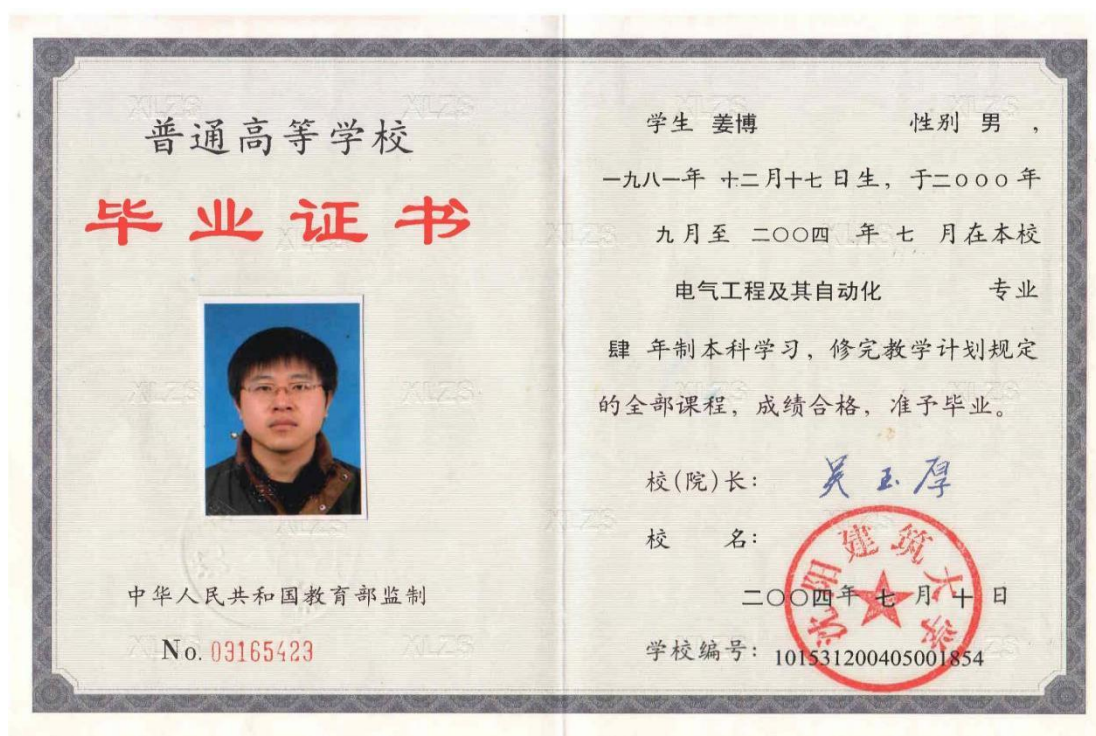 普通高等学校
毕业证书
中华人民共和国教育部监制
No. 03165423
学生 姜博 性别 男 ,
一九八一年 十二月十七日生, 于二〇〇〇年
九月至 二〇〇四 年 七 月在本校
电气工程及其自动化 专业
肆 年制本科学习, 修完教学计划规定
的全部课程, 成绩合格, 准予毕业。
校(院)长: 吴玉厚
校 名:
沈阳建筑大学
二〇〇四年 七 月 十 日
学校编号: 101531200405001854
XLZS